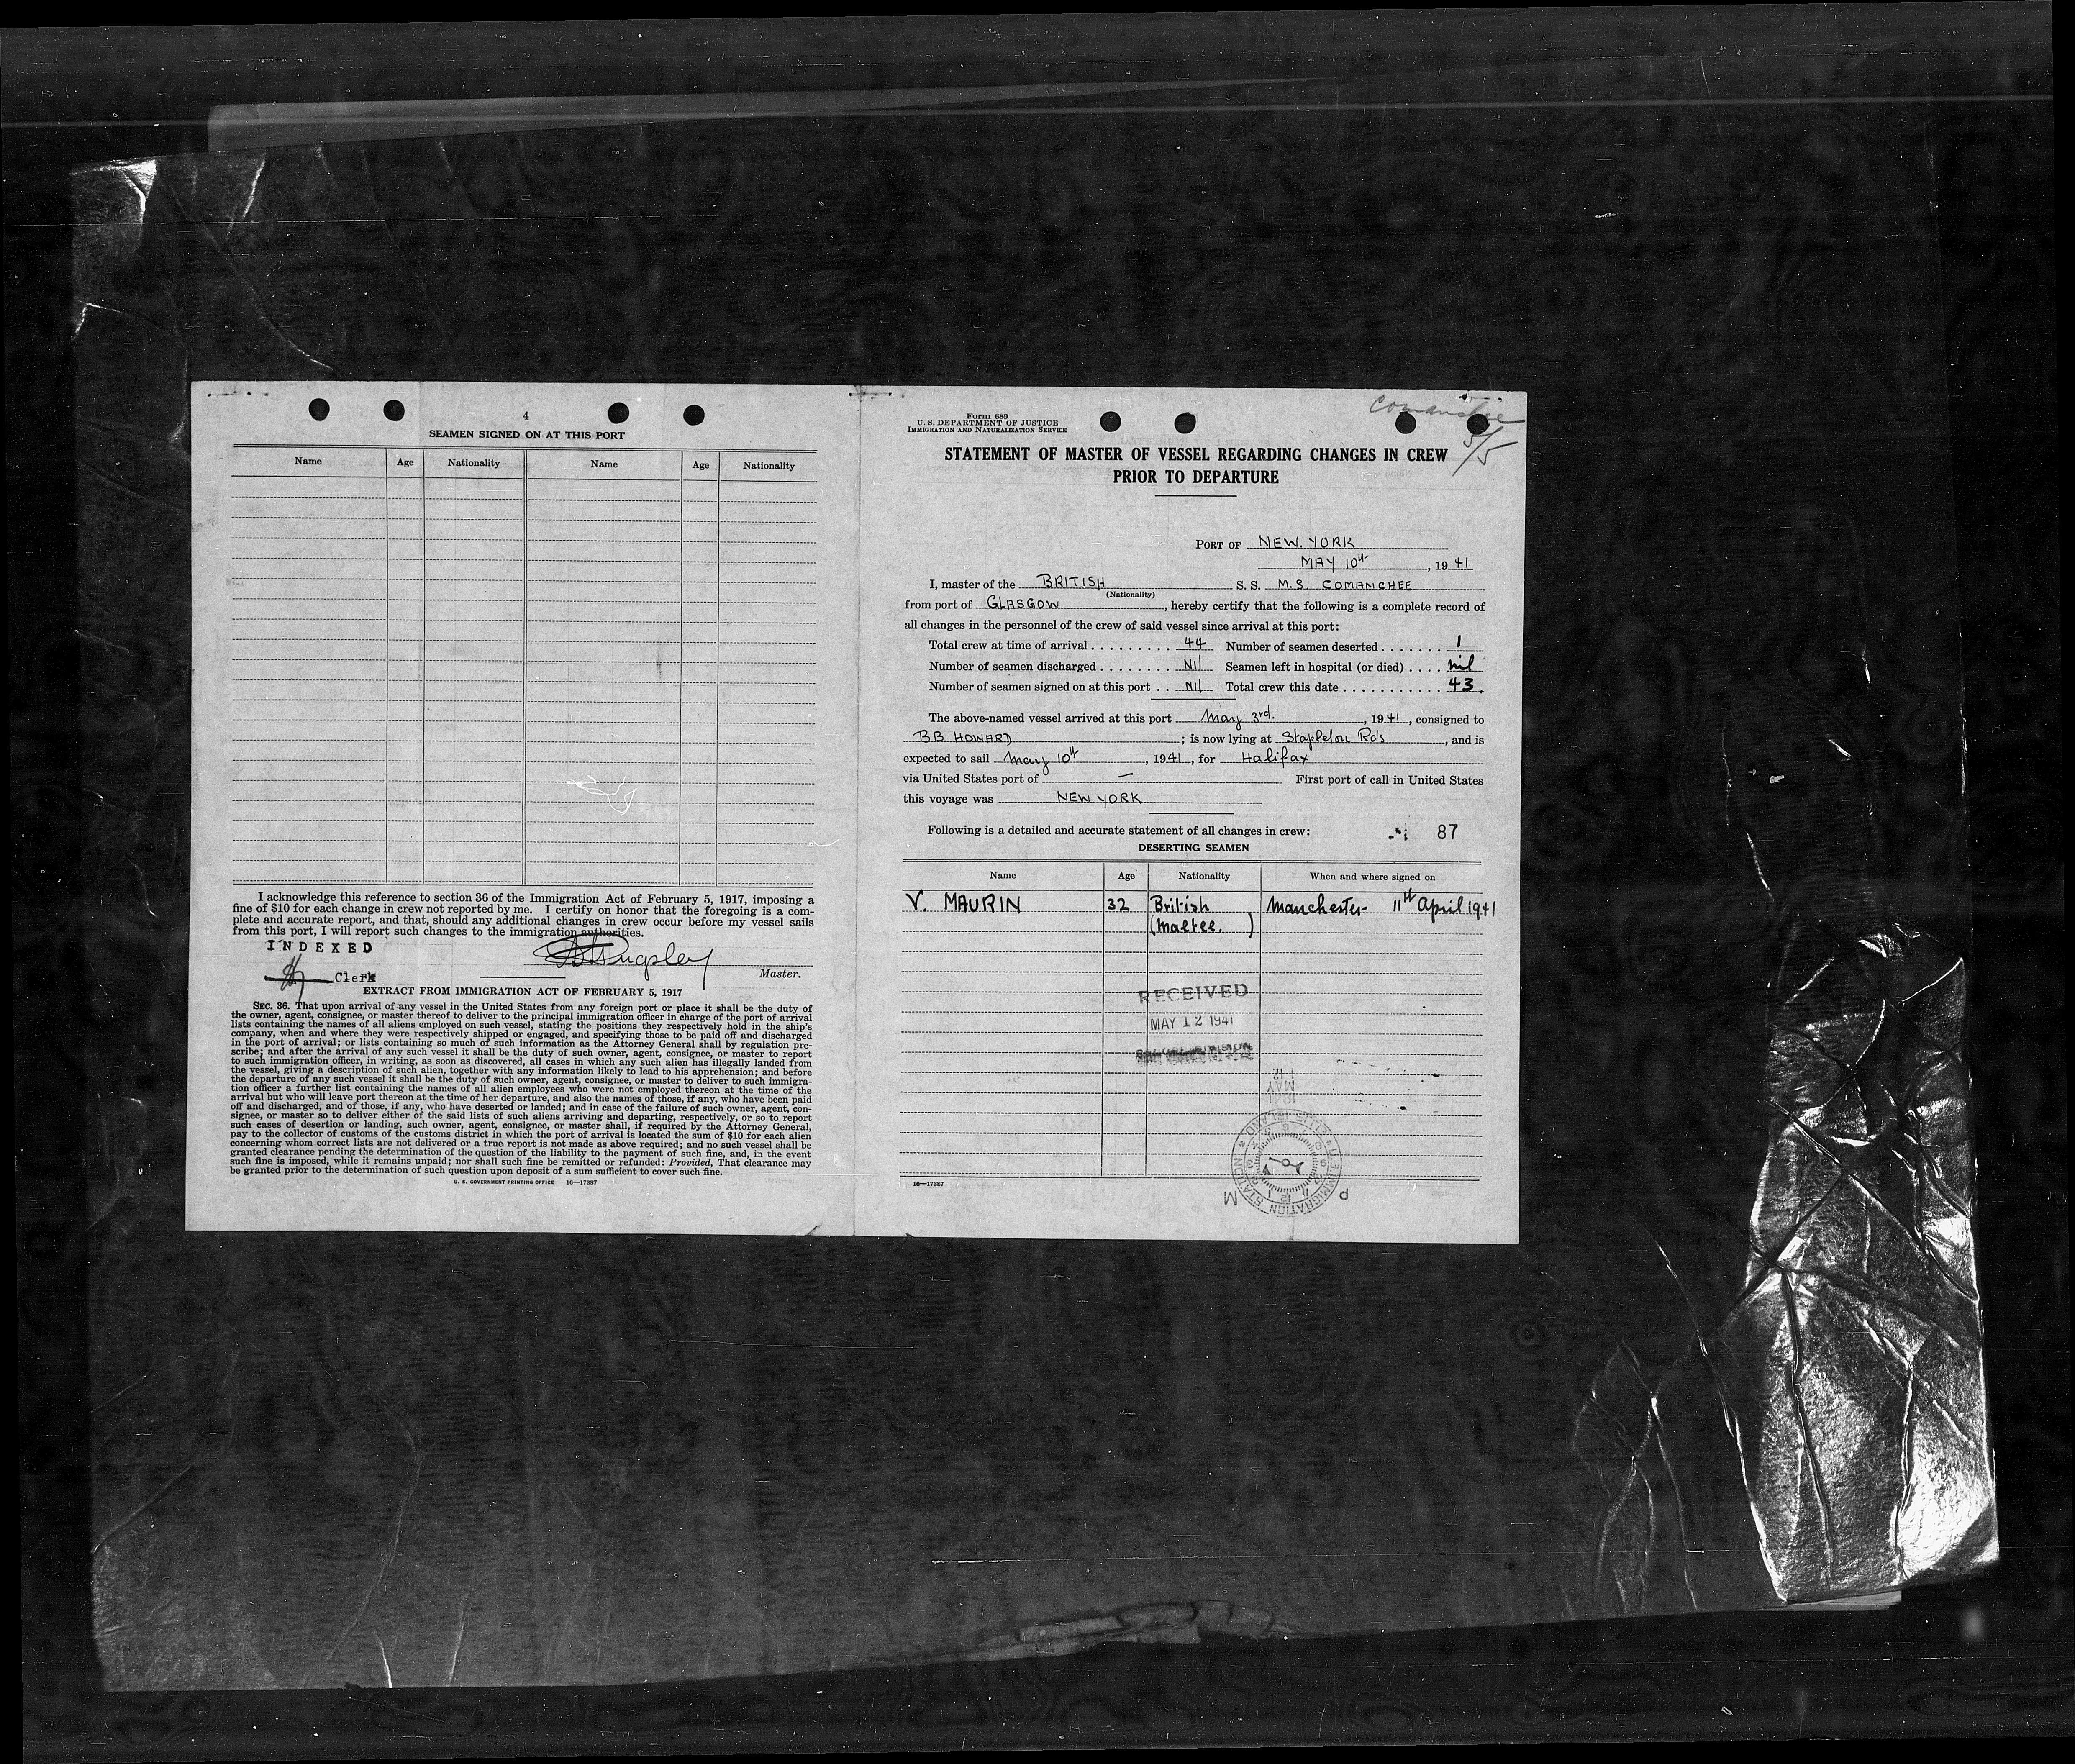 4
SEAMEN SIGNED ON AT THIS PORT
Name Age Nationality Name Age Nationality
I acknowledge this reference to section 36 of the Immigration Act of February 5, 1917, imposing a
fine of $10 for each change in crew not reported by me. I certify on honor that the foregoing is a com-
plete and accurate report, and that, should any additional changes in crew occur before my vessel sails
from this port, I will report such changes to the immigration authorities.
INDEXED
Pugsley
Clerk
Master.
EXTRACT FROM IMMIGRATION ACT OF FEBRUARY 5, 1917
SEC. 36. That upon arrival of any vessel in the United States from any foreign port or place it shall be the duty of
the owner, agent, consignee, or master thereof to deliver to the principal immigration officer in charge of the port of arrival
lists containing the names of all aliens employed on such vessel, stating the positions they respectively hold in the ship's
company, when and where they were respectively shipped or engaged, and specifying those to be paid off and discharged
in the port of arrival; or lists containing so much of such information as the Attorney General shall by regulation pre-
scribe; and after the arrival of any such vessel it shall be the duty of such owner, agent, consignee, or master to report
to such immigration officer, in writing, as soon as discovered, all cases in which any such alien has illegally landed from
the vessel, giving a description of such alien, together with any information likely to lead to his apprehension; and before
the departure of any such vessel it shall be the duty of such owner, agent, consignee, or master to deliver to such immigra-
tion officer a further list containing the names of all alien employees who were not employed thereon at the time of the
arrival but who will leave port thereon at the time of her departure, and also the names of those, if any, who have been paid
off and discharged, and of those, if any, who have deserted or landed; and in case of the failure of such owner, agent, con-
signee, or master so to deliver either of the said lists of such aliens arriving and departing, respectively, or so to report
such cases of desertion or landing, such owner, agent, consignee, or master shall, if required by the Attorney General,
pay to the collector of customs of the customs district in which the port of arrival is located the sum of $10 for each alien
concerning whom correct lists are not delivered or a true report is not made as above required; and no such vessel shall be
granted clearance pending the determination of the question of the liability to the payment of such fine, and, in the event
such fine is imposed, while it remains unpaid; nor shall such fine be remitted or refunded: Provided, That clearance may
be granted prior to the determination of such question upon deposit of a sum sufficient to cover such fine.
U. S. GOVERNMENT PRINTING OFFICE 16—17387
Comanchee
5/5
Form 689
U. S. DEPARTMENT OF JUSTICE
IMMIGRATION AND NATURALIZATION SERVICE
STATEMENT OF MASTER OF VESSEL REGARDING CHANGES IN CREW
PRIOR TO DEPARTURE
PORT OF NEW YORK
MAY 10th, 1941
I, master of the BRITISH S. S. M.S. COMANCHEE
(Nationality)
from port of GLASGOW, hereby certify that the following is a complete record of
all changes in the personnel of the crew of said vessel since arrival at this port:
Total crew at time of arrival . . . . . . . . . 44 Number of seamen deserted . . . . . . . 1
Number of seamen discharged . . . . . . . . Nil Seamen left in hospital (or died) . . . . nil
Number of seamen signed on at this port . . Nil Total crew this date . . . . . . . . . . . 43.
The above-named vessel arrived at this port May 3rd., 1941, consigned to
B.B. HOWARD; is now lying at Stapleton Rds, and is
expected to sail May 10th, 1941, for Halifax
via United States port of — First port of call in United States
this voyage was NEW YORK
Following is a detailed and accurate statement of all changes in crew: 87
DESERTING SEAMEN
Name Age Nationality When and where signed on
V. MAURIN 32 British Manchester 11th April 1941
(Maltee.)
RECEIVED
MAY 12 1941
MAY 12
1941
U.S. IMMIGRATION STATION
P M
16—17387